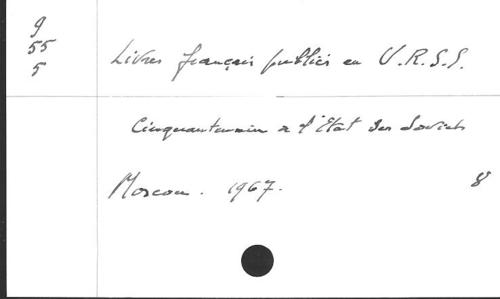 9
55
5
Livres français publiés en U.R.S.S.
Cinquantenaire de l'Etat des Soviets
Moscou. 1967. 8